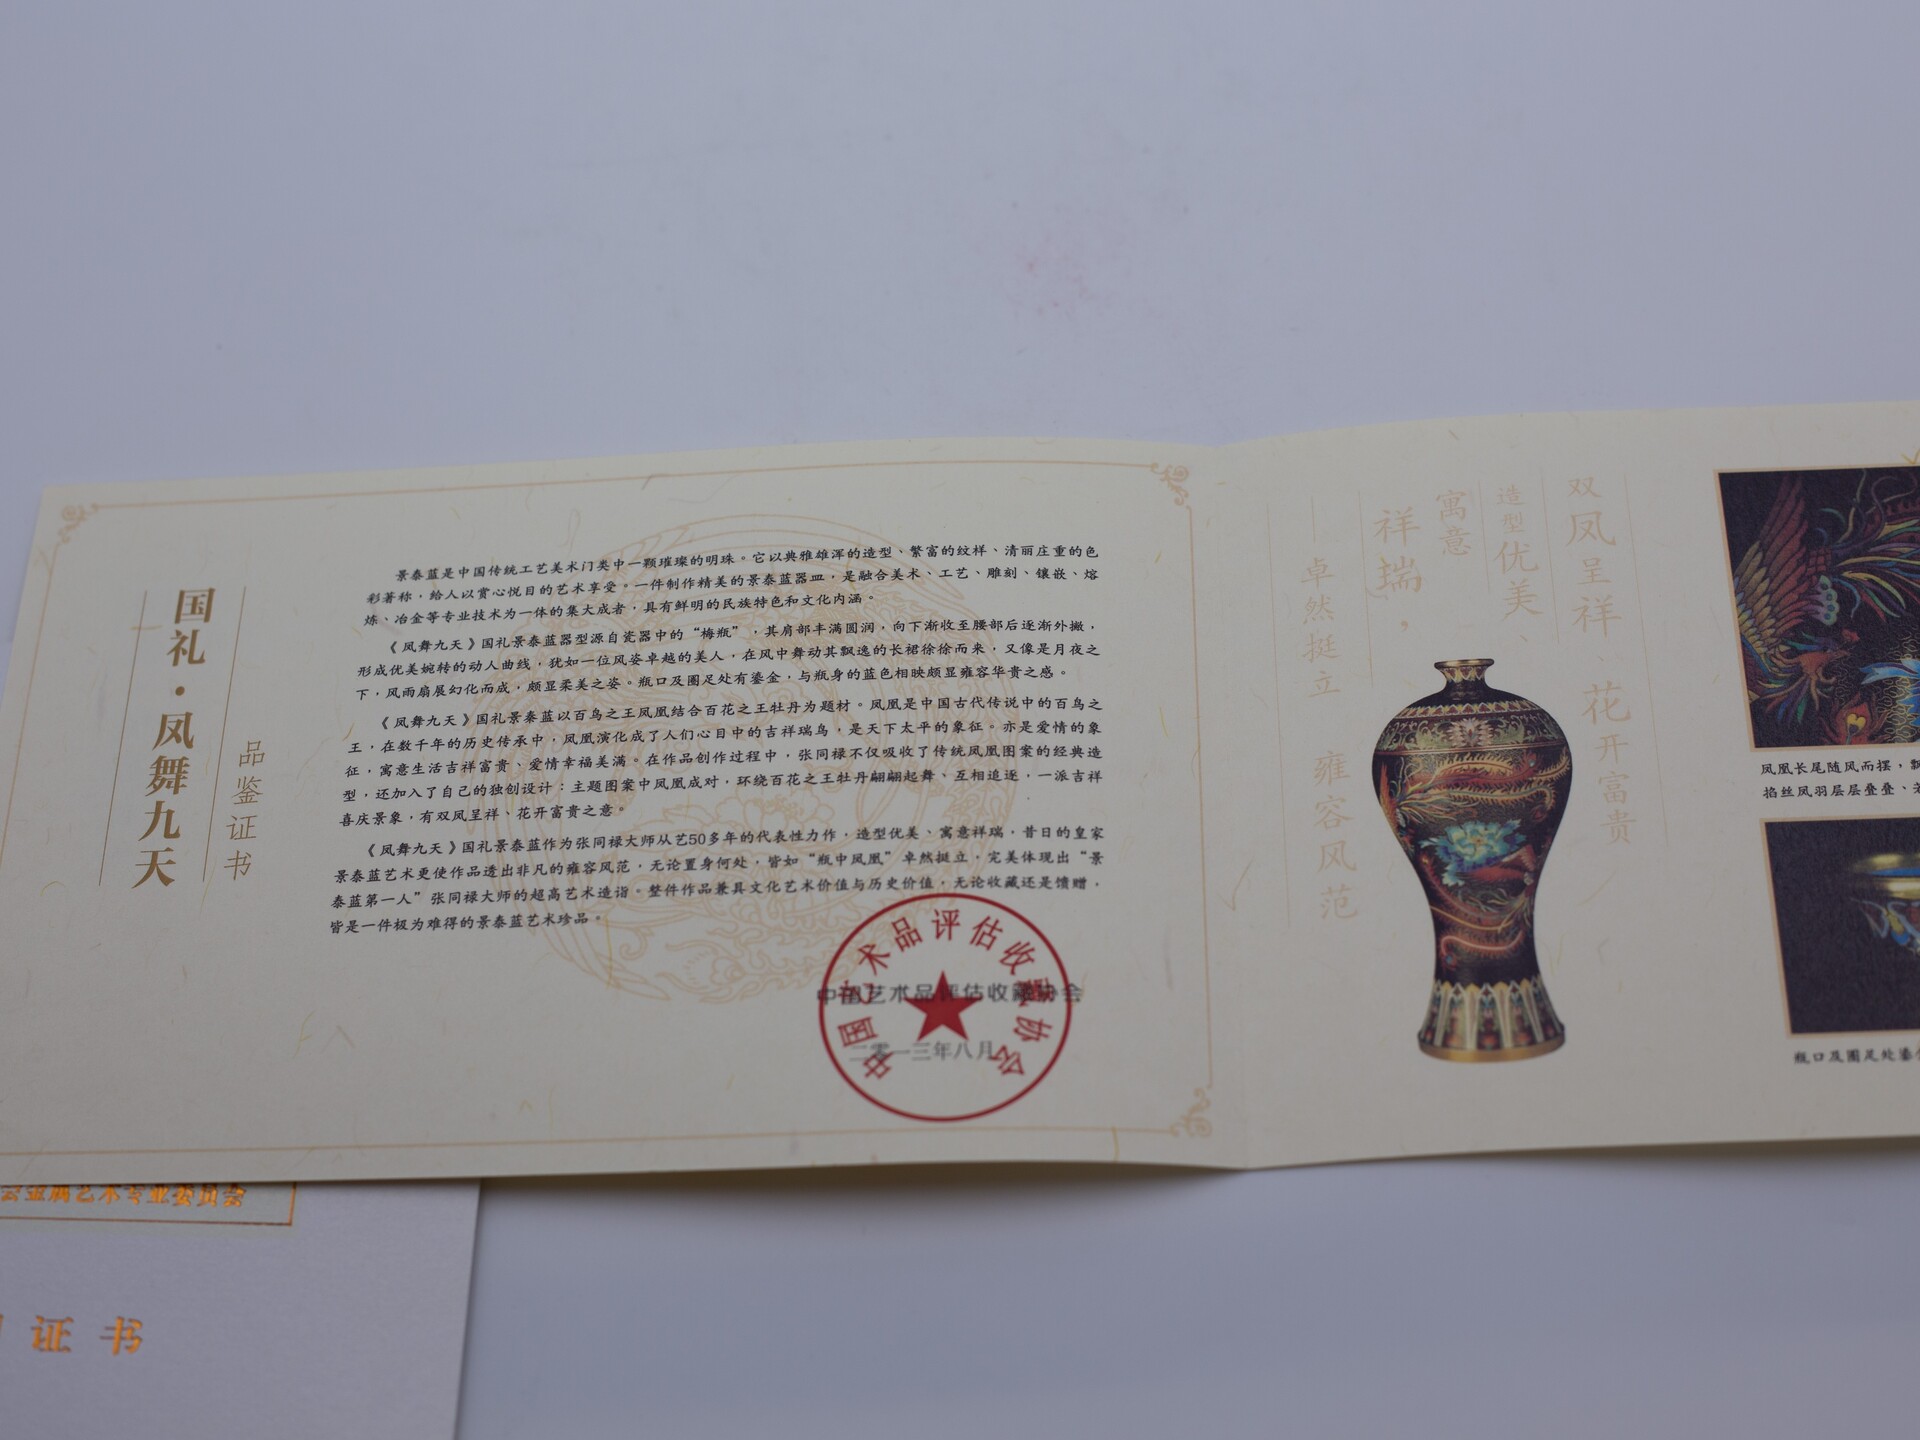 国礼·凤舞九天
品鉴证书
景泰蓝是中国传统工艺美术门类中一颗璀璨的明珠。它以典雅雄浑的造型、繁富的纹样、清丽庄重的色
彩著称，给人以赏心悦目的艺术享受。一件制作精美的景泰蓝器皿，是融合美术、工艺、雕刻、镶嵌、熔
炼、冶金等专业技术为一体的集大成者，具有鲜明的民族特色和文化内涵。
《凤舞九天》国礼景泰蓝器型源自瓷器中的“梅瓶”，其肩部丰满圆润，向下渐收至腰部后逐渐外撇，
形成优美婉转的动人曲线，犹如一位风姿卓越的美人，在风中舞动其飘逸的长裙徐徐而来，又像是月夜之
下，风雨扇展幻化而成，颇显柔美之姿。瓶口及圈足处有鎏金，与瓶身的蓝色相映颇显雍容华贵之感。
《凤舞九天》国礼景泰蓝以百鸟之王凤凰结合百花之王牡丹为题材。凤凰是中国古代传说中的百鸟之
王，在数千年的历史传承中，凤凰演化成了人们心目中的吉祥瑞鸟，是天下太平的象征。亦是爱情的象
征，寓意生活吉祥富贵、爱情幸福美满。在作品创作过程中，张同禄不仅吸收了传统凤凰图案的经典造
型，还加入了自己的独创设计：主题图案中凤凰成对，环绕百花之王牡丹翩翩起舞、互相追逐，一派吉祥
喜庆景象，有双凤呈祥、花开富贵之意。
《凤舞九天》国礼景泰蓝作为张同禄大师从艺50多年的代表性力作，造型优美、寓意祥瑞，昔日的皇家
景泰蓝艺术更使作品透出非凡的雍容风范，无论置身何处，皆如“瓶中凤凰”卓然挺立，完美体现出“景
泰蓝第一人”张同禄大师的超高艺术造诣。整件作品兼具文化艺术价值与历史价值，无论收藏还是馈赠，
皆是一件极为难得的景泰蓝艺术珍品。
中国艺术品评估收藏协会
二零一三年八月
中国艺术品评估收藏协会
双凤呈祥、花开富贵
造型优美、
寓意
祥瑞，
卓然挺立 雍容风范
凤凰长尾随风而摆，飘
掐丝凤羽层层叠叠、若
瓶口及圈足处鎏金
会金属艺术专业委员会
证书